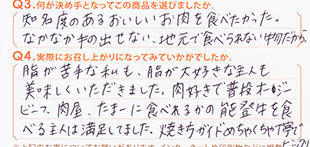 Q3.何が決め手となってこの商品を選びましたか。
知名度のあるおいしいお肉を食べたかった。
なかなか手の出せない、地元で食べられない物だから。
Q4.実際にお召し上がりになってみていかがでしたか。
脂が苦手な私も、脂が大好きな主人も
美味しくいただきました。肉好きで普段オージー
ビーフ、肉屋、たまーに食べれるかの能登牛を食
べる主人は満足してました。焼き方ガイドめちゃくちゃ丁寧で
ビックリ